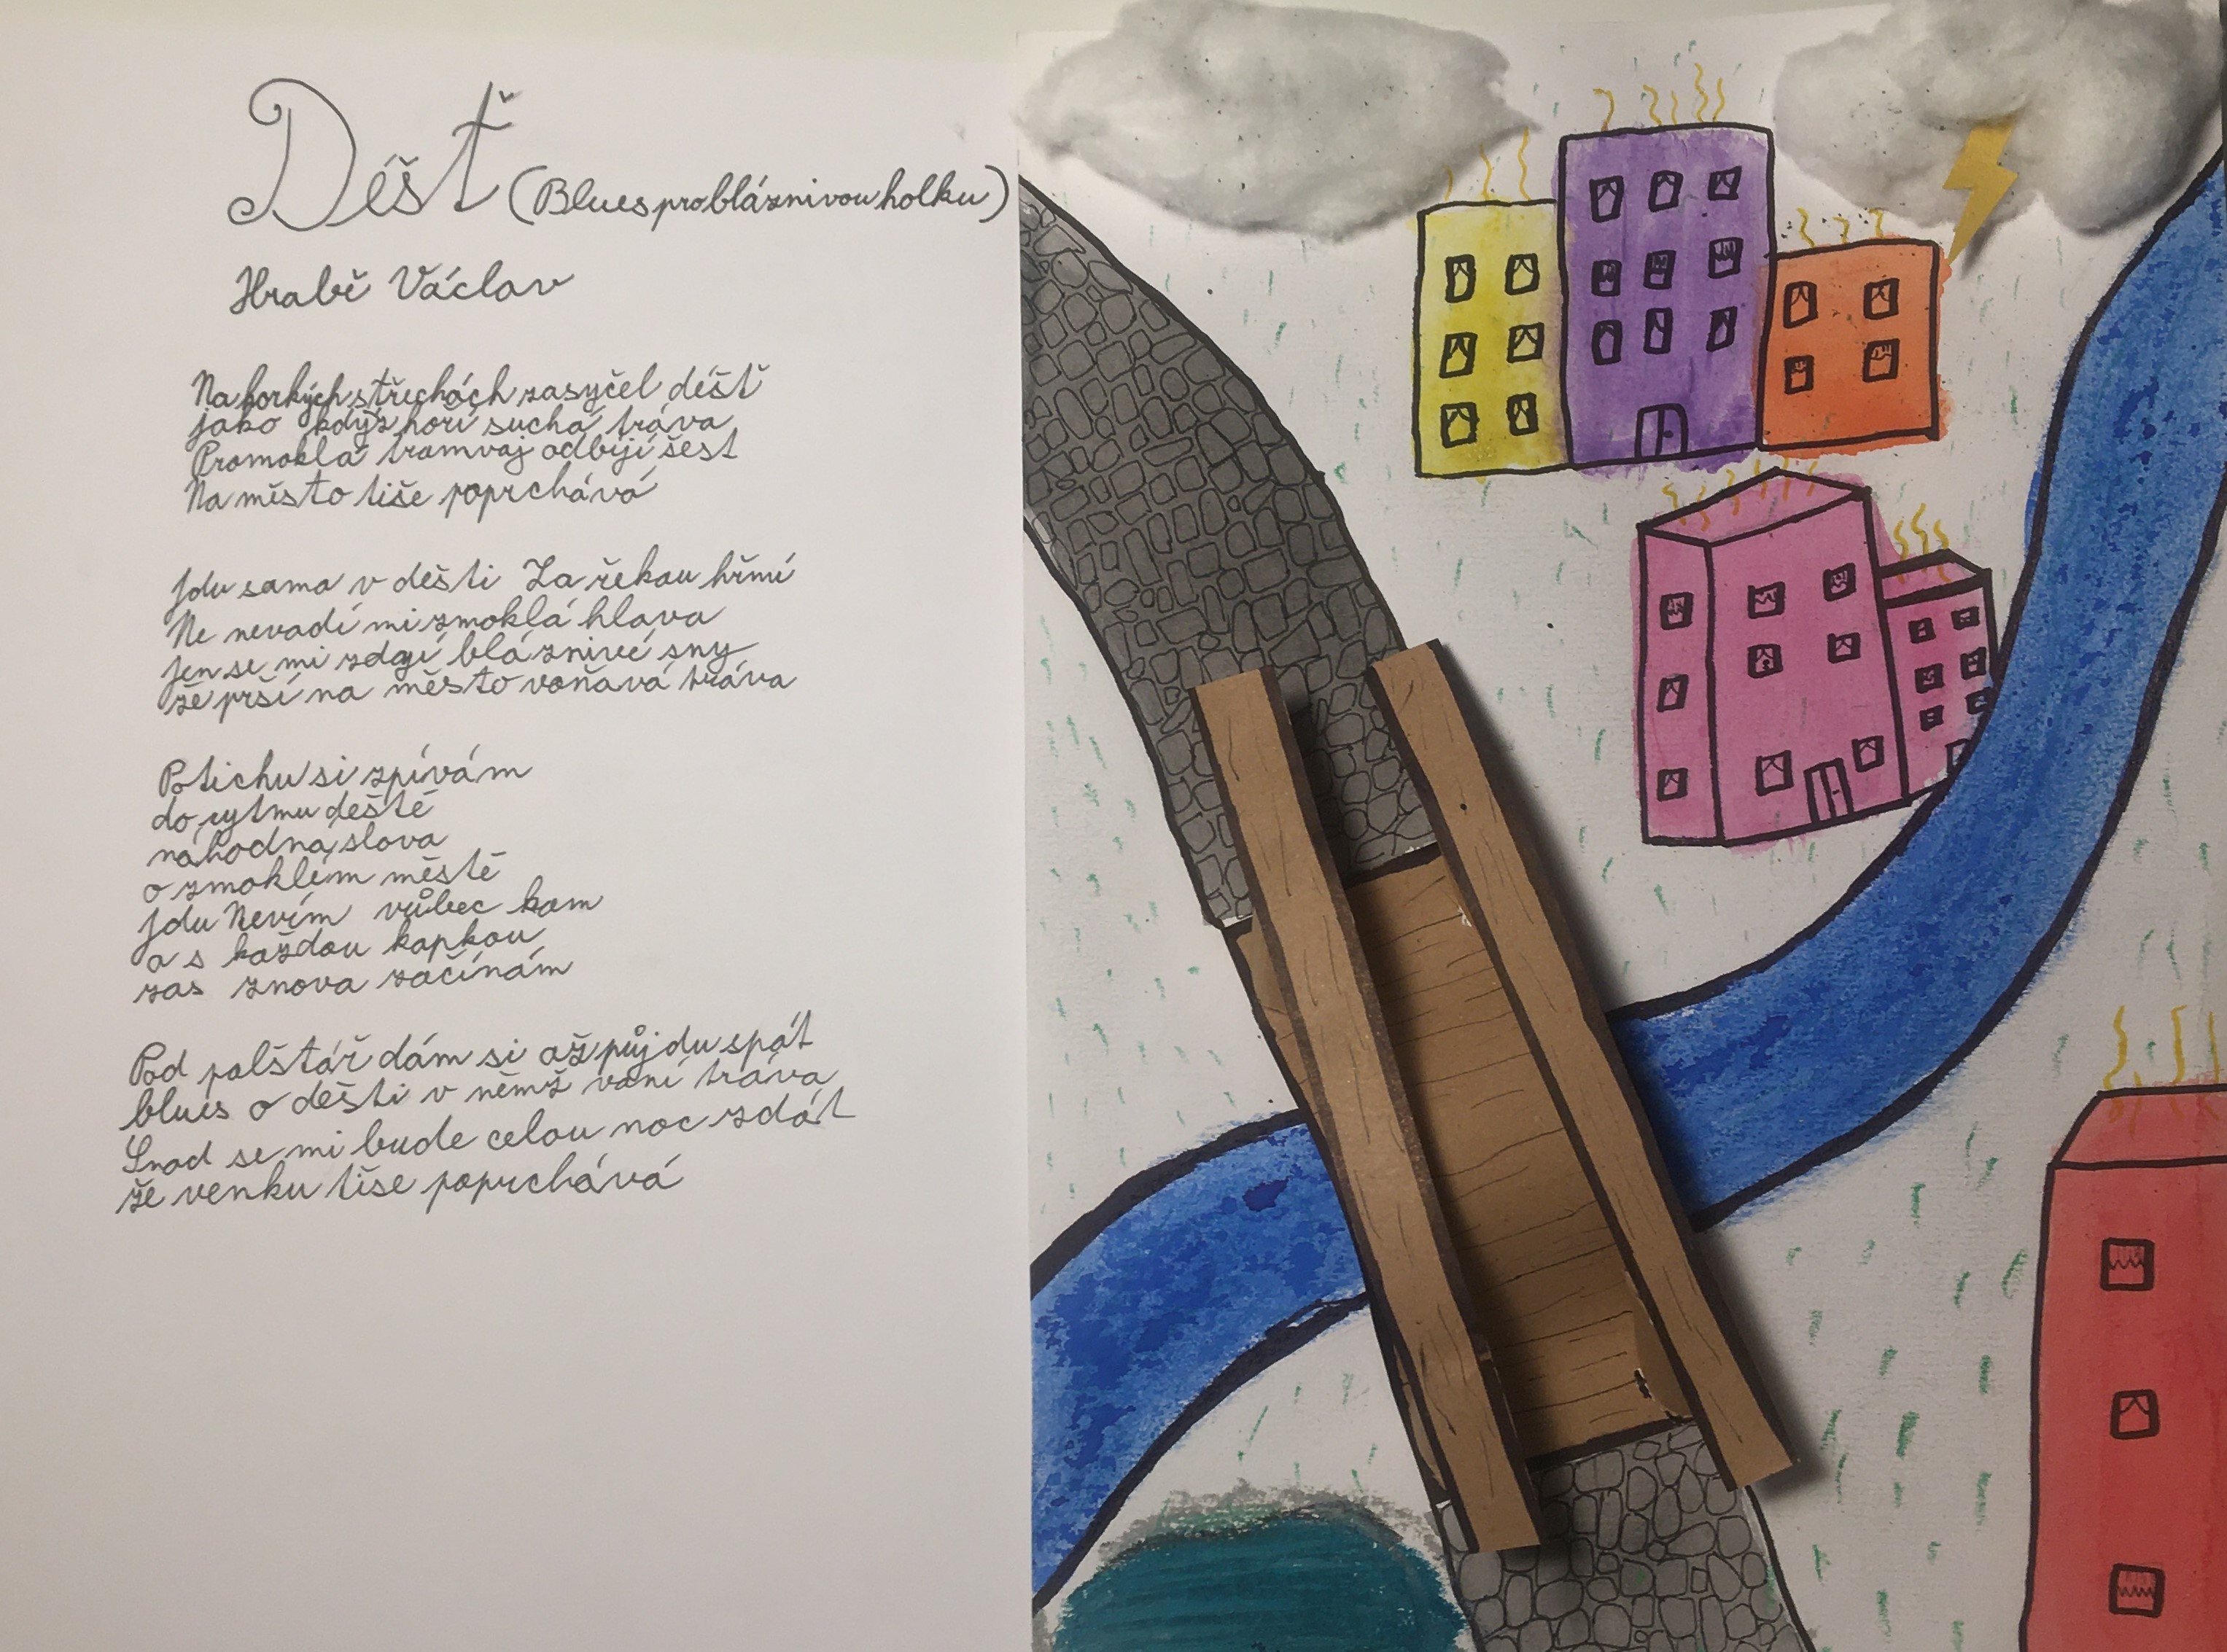 Déšť (Blues pro bláznivou holku)
Hrabě Václav
Na horkých střechách zasyčel déšť
jako když hoří suchá tráva
Promoklá tramvaj odbíjí šest
Na město tiše poprchává
Jdu sama v dešti Za řekou hřmí
Ne nevadí mi zmoklá hlava
Jen se mi zdají bláznivé sny
že prší na město voňavá tráva
Potichu si zpívám
do rytmu deště
náhodná slova
o zmoklém městě
Jdu Nevím vůbec kam
a s každou kapkou
zas znova začínám
Pod polštář dám si až půjdu spát
blues o dešti v němž voní tráva
Snad se mi bude celou noc zdát
že venku tiše poprchává